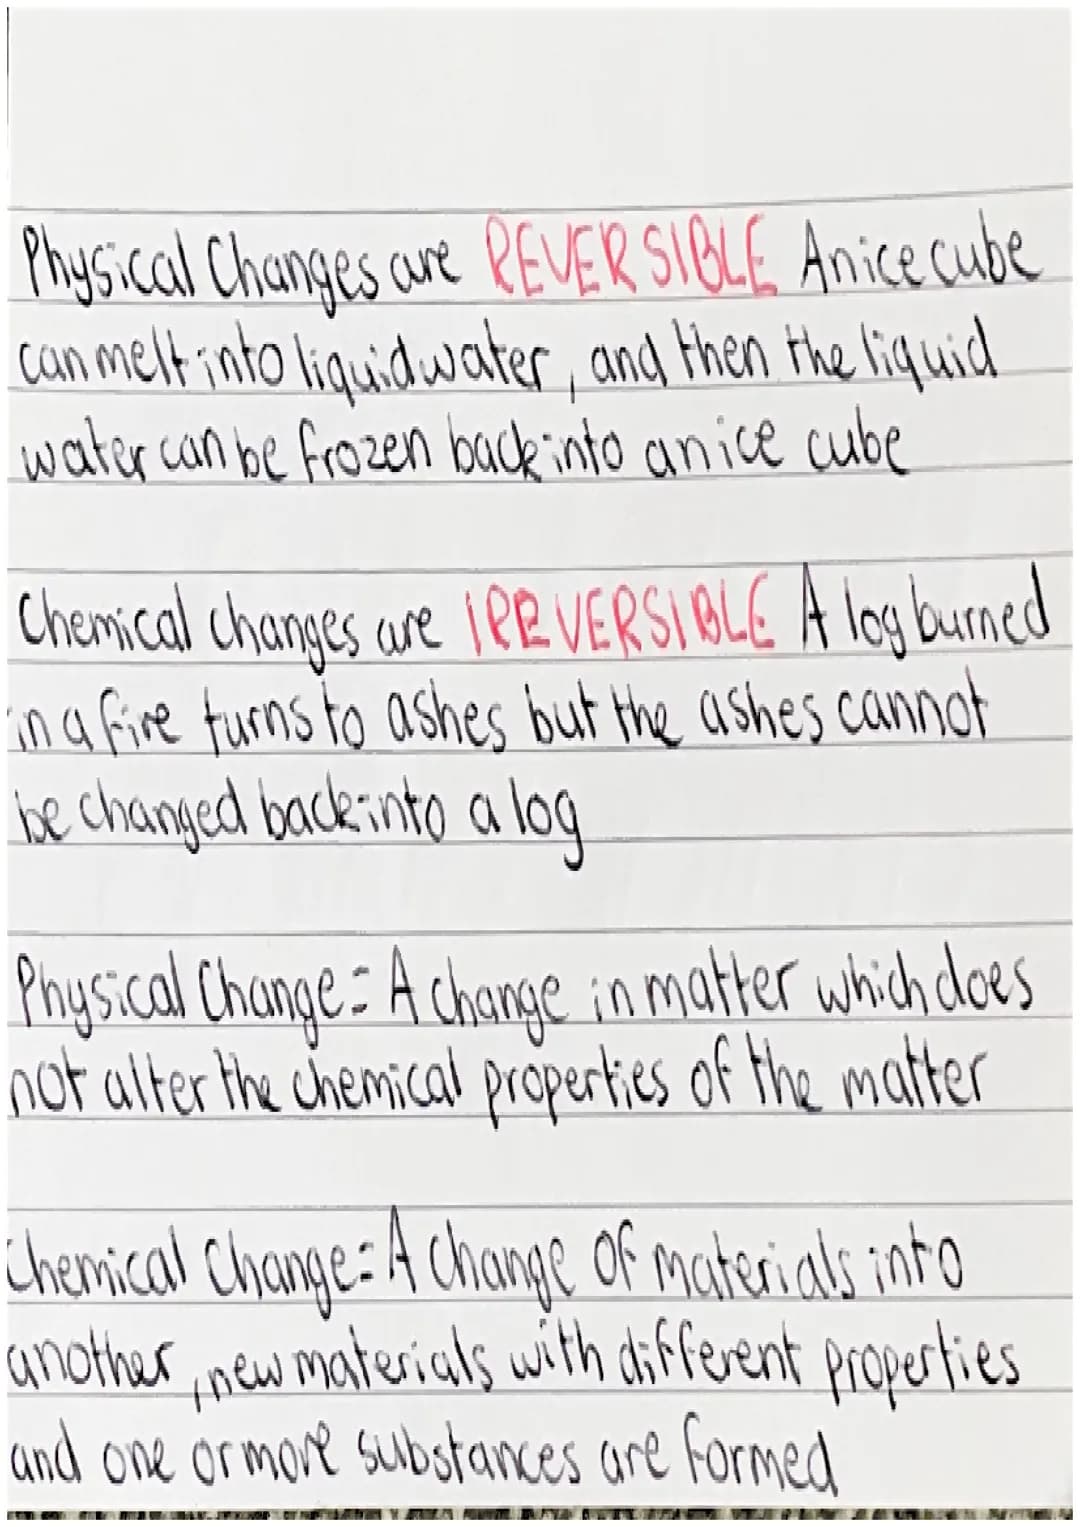 Physical Changes are REVERSIBLE An ice cube
can melt into liquid water, and then the liquid
water can be frozen back into an ice cube
Chemical changes are IRRVERSIBLE A log burned
in a fire turns to ashes but the ashes cannot
be changed back into a log
Physical Change = A change in matter which does
not alter the chemical properties of the matter
Chemical Change = A Change Of materials into
another, new materials with different properties
and one or more substances are formed